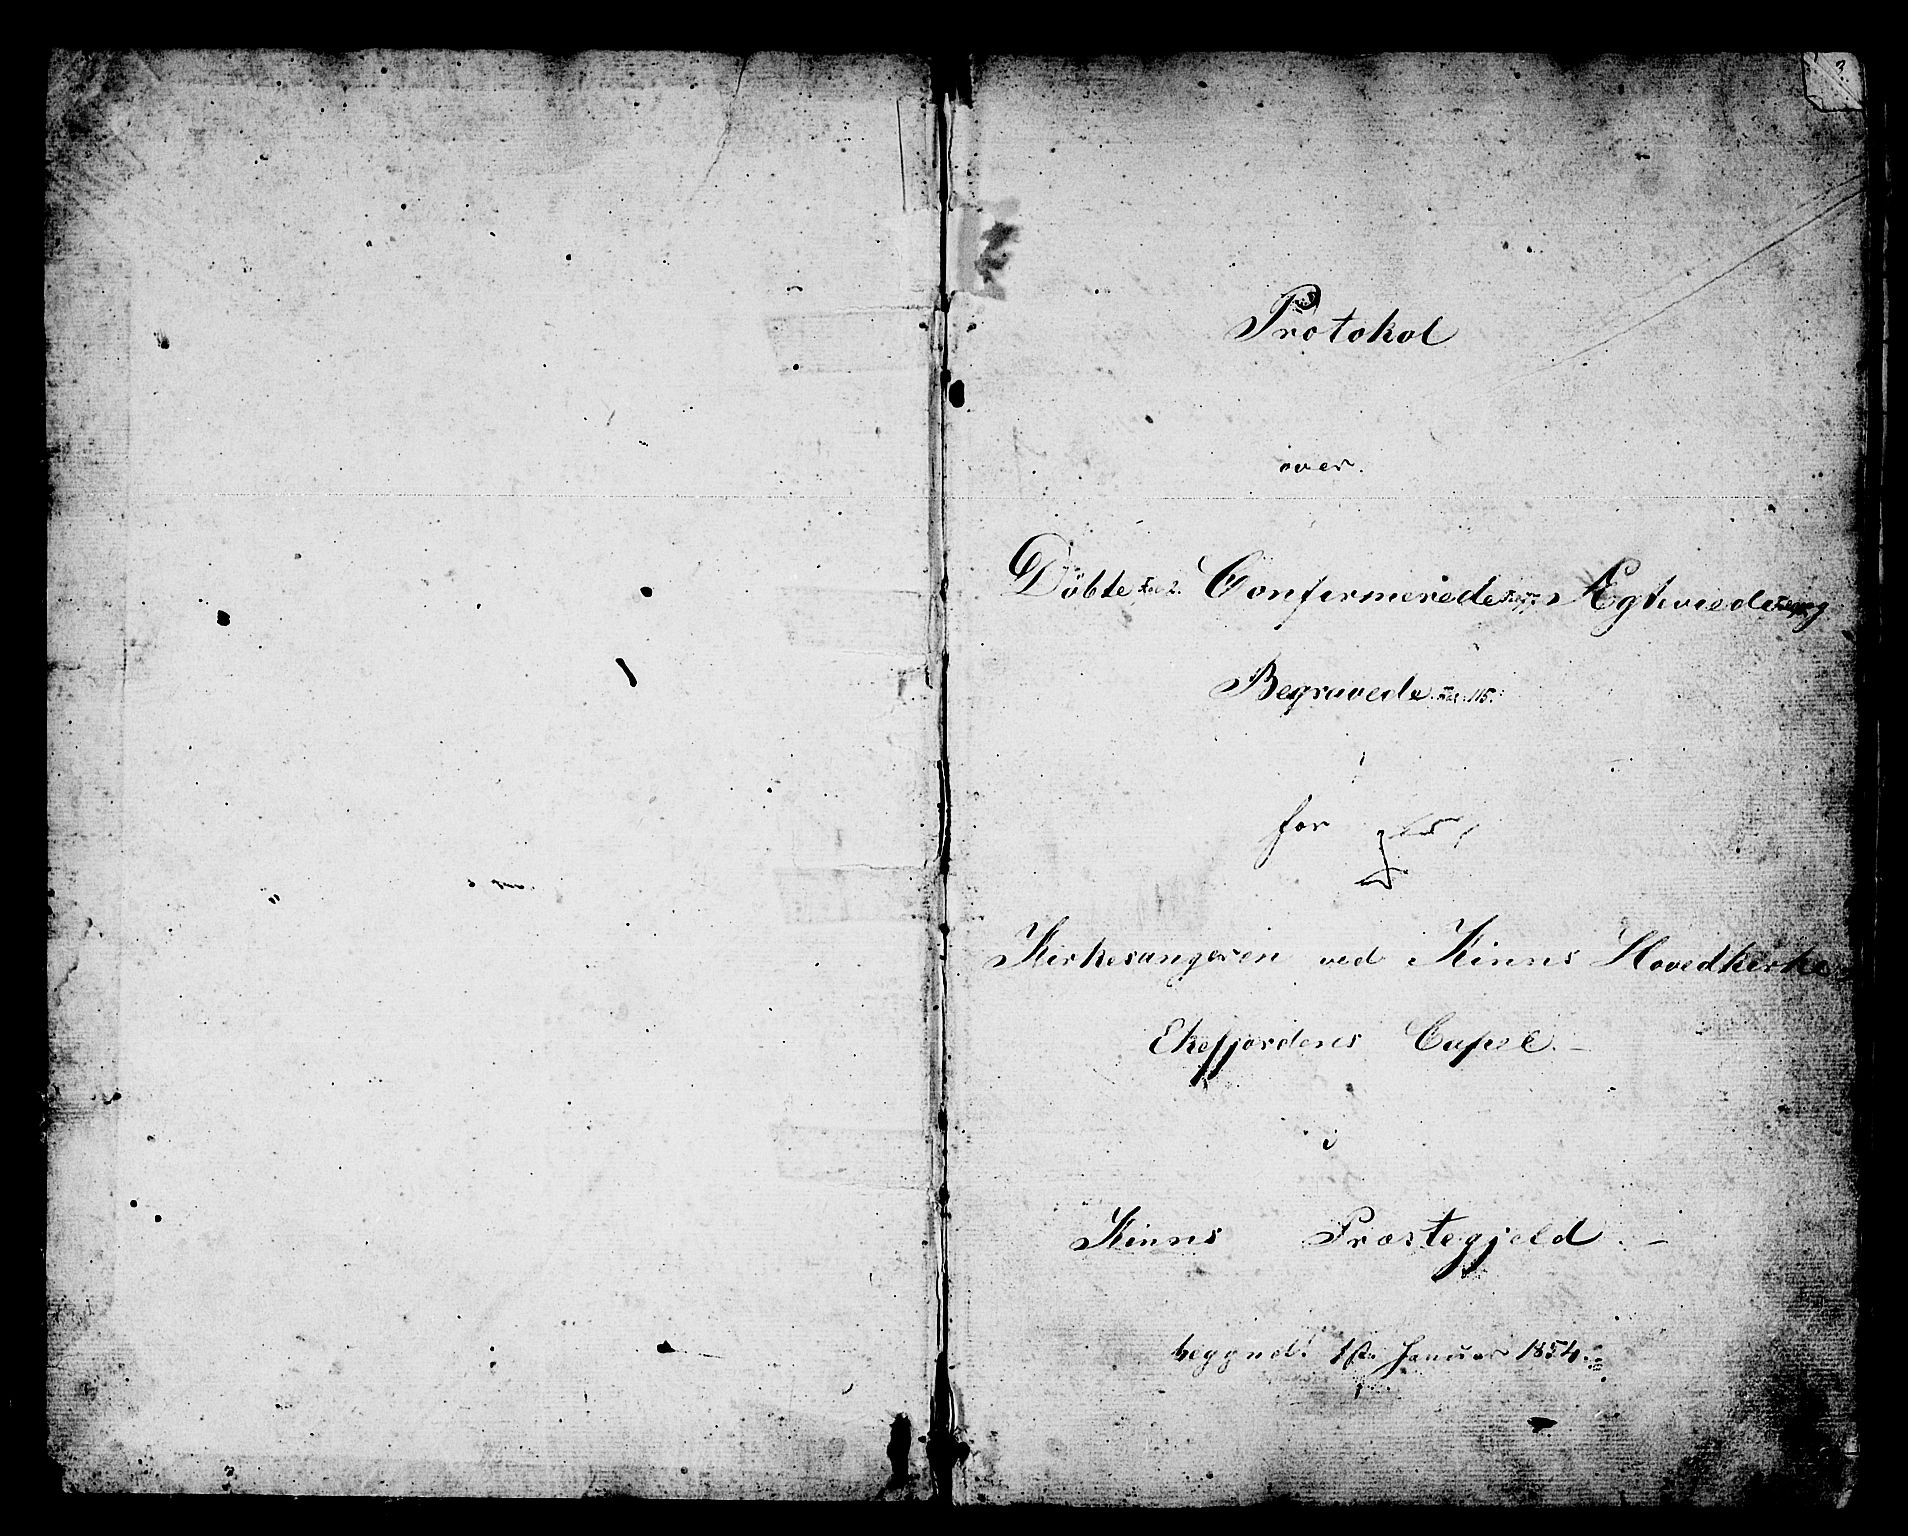 3
Protokol
over.
Döbte Confirmerede Ægteviede og
Begravede 115.
for
Kirkesangeren ved Kinns Hovedkirke
Ekefjordens Capel. –
i
Kinns Præstegjeld. –
begynd. 1ste Januar 1854.